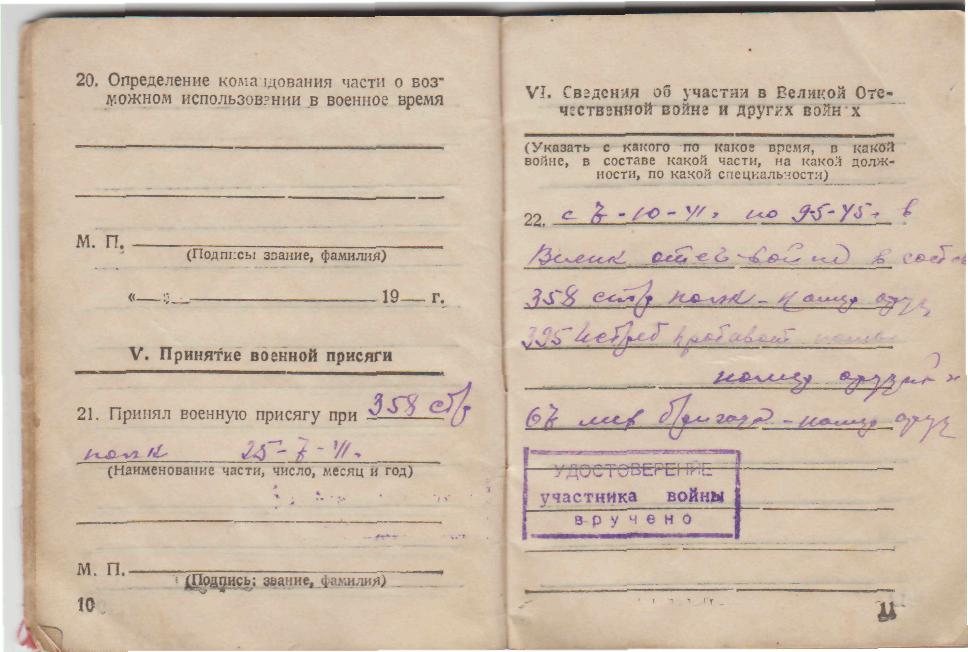 20. Определение командования части о воз-
можном использовании в военное время
М. П.
(Подписы звание, фамилия)
« » 19 г.
V. Принятие военной присяги
21. Принял военную присягу при 358 стр
полк 25-7-41.
(Наименование части, число, месяц и год)
М. П.
(Подпись; звание, фамилия)
10
VI. Сведения об участии в Великой Оте-
чественной войне и других войнах
(Указать с какого по какое время, в какой
войне, в составе какой части, на какой долж-
ности, по какой специальности)
22. с 7-10-41. по 9-5-45. в
Велик отеч войне в
358 стр полк - номер
395 истреб
номер
67 бригада - номер
УДОСТОВЕРЕНИЕ
участника войны
вручено
11